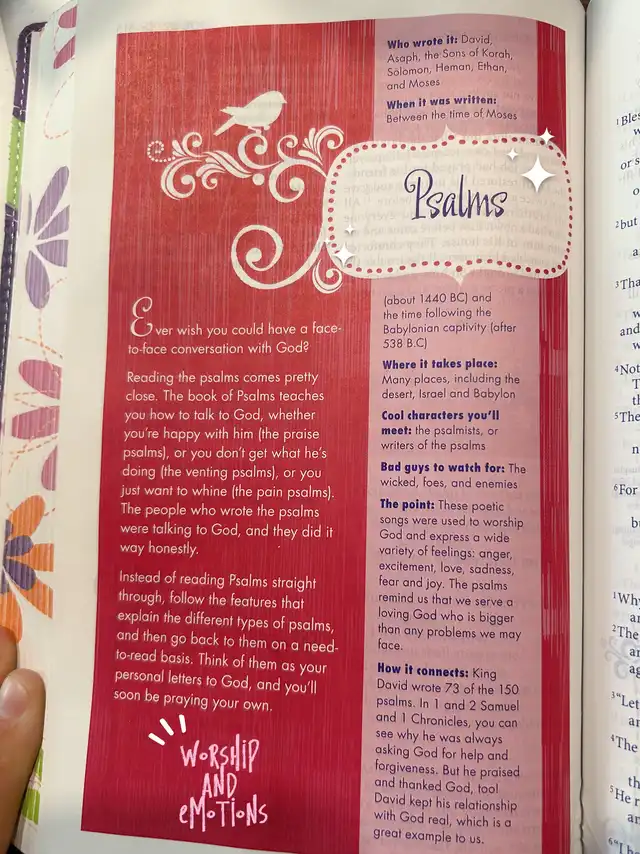 Psalms
Ever wish you could have a face-
to-face conversation with God?
Reading the psalms comes pretty
close. The book of Psalms teaches
you how to talk to God, whether
you're happy with him (the praise
psalms), or you don't get what he's
doing (the venting psalms), or you
just want to whine (the pain psalms).
The people who wrote the psalms
were talking to God, and they did it
way honestly.
Instead of reading Psalms straight
through, follow the features that
explain the different types of psalms,
and then go back to them on a need-
to-read basis. Think of them as your
personal letters to God, and you'll
soon be praying your own.
WORSHIP
AND
eMOTIONS
Who wrote it: David,
Asaph, the Sons of Korah,
Solomon, Heman, Ethan,
and Moses
When it was written:
Between the time of Moses
(about 1440 BC) and
the time following the
Babylonian captivity (after
538 B.C)
Where it takes place:
Many places, including the
desert, Israel and Babylon
Cool characters you'll
meet: the psalmists, or
writers of the psalms
Bad guys to watch for: The
wicked, foes, and enemies
The point: These poetic
songs were used to worship
God and express a wide
variety of feelings: anger,
excitement, love, sadness,
fear and joy. The psalms
remind us that we serve a
loving God who is bigger
than any problems we may
face.
How it connects: King
David wrote 73 of the 150
psalms. In 1 and 2 Samuel
and 1 Chronicles, you can
see why he was always
asking God for help and
forgiveness. But he praised
and thanked God, too!
David kept his relationship
with God real, which is a
great example to us.
1
or s
2 but
3
and
4 Not
5 The
6 For
1 Why
2 The
3 "Let
4 The
5 He